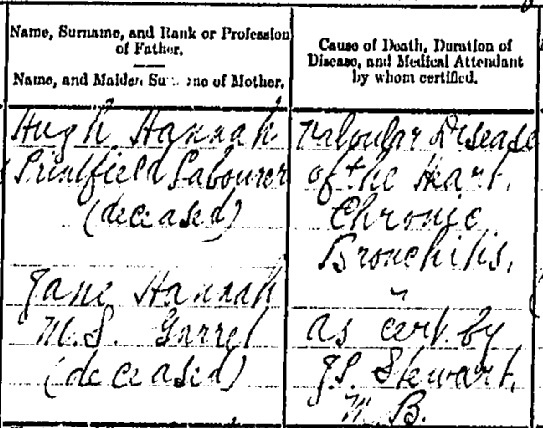 Name, Surname, and Rank or Profession
of Father.
Name, and Maiden Surname of Mother.
Hugh Hannah
Printfield Labourer
(deceased)
Jane Hannah
M.S. Garrel
(deceased)
Cause of Death, Duration of
Disease, and Medical Attendant
by whom certified.
Valvular Disease
of the Heart.
Chronic
Bronchitis.
as cert. by
J.S. Stewart.
M.B.